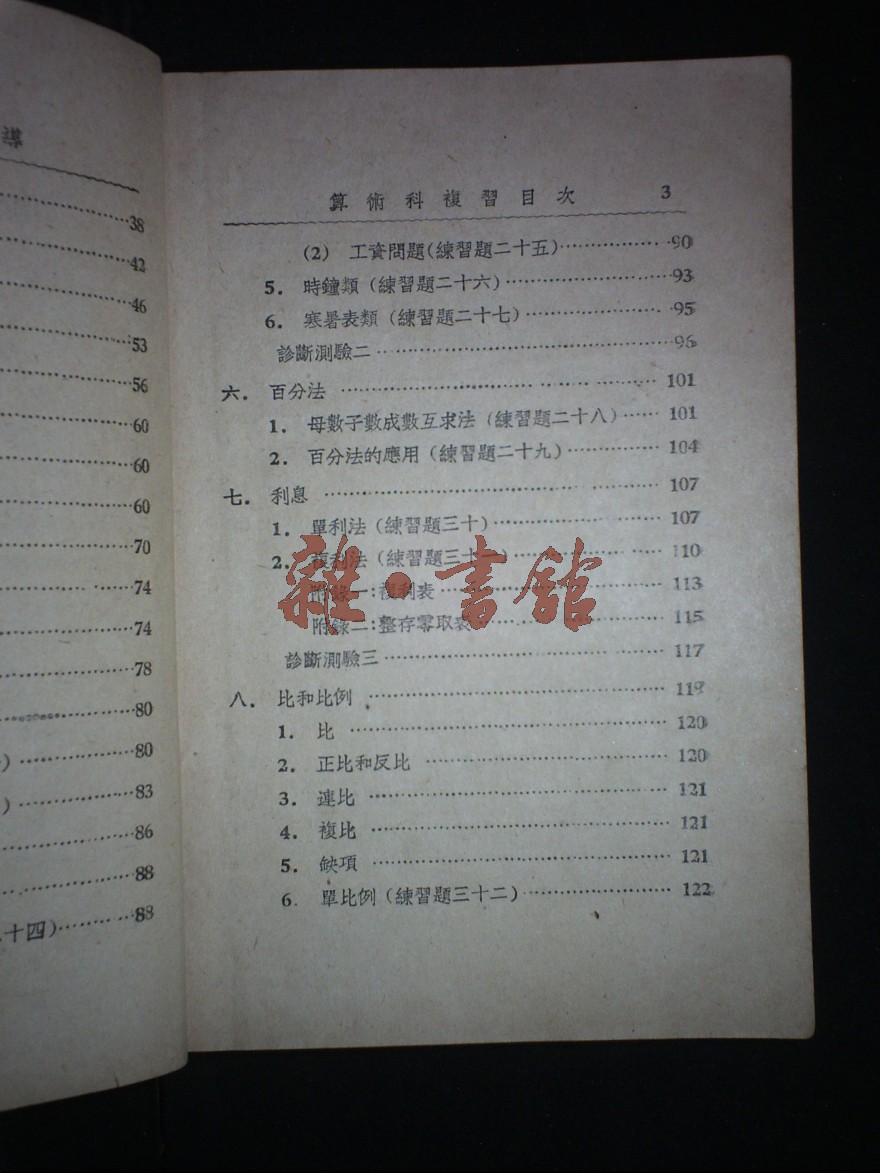 38
42
46
53
56
60
60
60
70
74
74
78
80
)80
)83
86
88
十四)88
算術科複習目次 3
(2) 工資問題(練習題二十五)90
5. 時鐘類(練習題二十六)93
6. 寒暑表類(練習題二十七)95
診斷測驗二96
六. 百分法101
1. 母數子數成數互求法(練習題二十八)101
2. 百分法的應用(練習題二十九)104
七. 利息107
1. 單利法(練習題三十)107
2. 複利法(練習題三十一)110
附錄一:複利表113
附錄二:整存零取表115
診斷測驗三117
八. 比和比例119
1. 比120
2. 正比和反比120
3. 連比121
4. 複比121
5. 缺項121
6. 單比例(練習題三十二)122
雜·書館